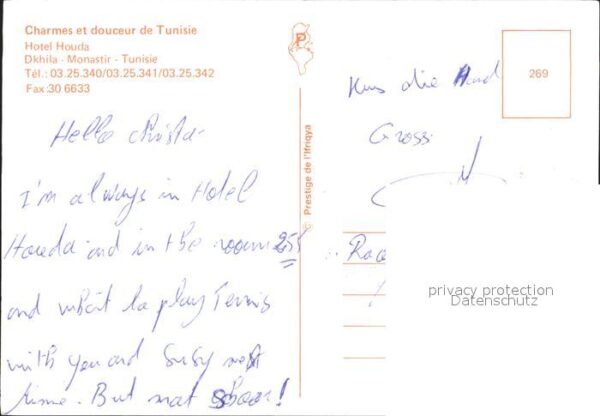 Charmes et douceur de Tunisie
Hotel Houda
Dkhila - Monastir - Tunisie
Tél.: 03.25.340/03.25.341/03.25.342
Fax 30 6633
Hello Christa
I'm always in Hotel
Houda and in the room 255
and to play Tennis
with you and Susy next
time. But not
© Prestige de l'Ifriqya
P
269
Kus die Hand
Grossi
privacy protection
Datenschutz